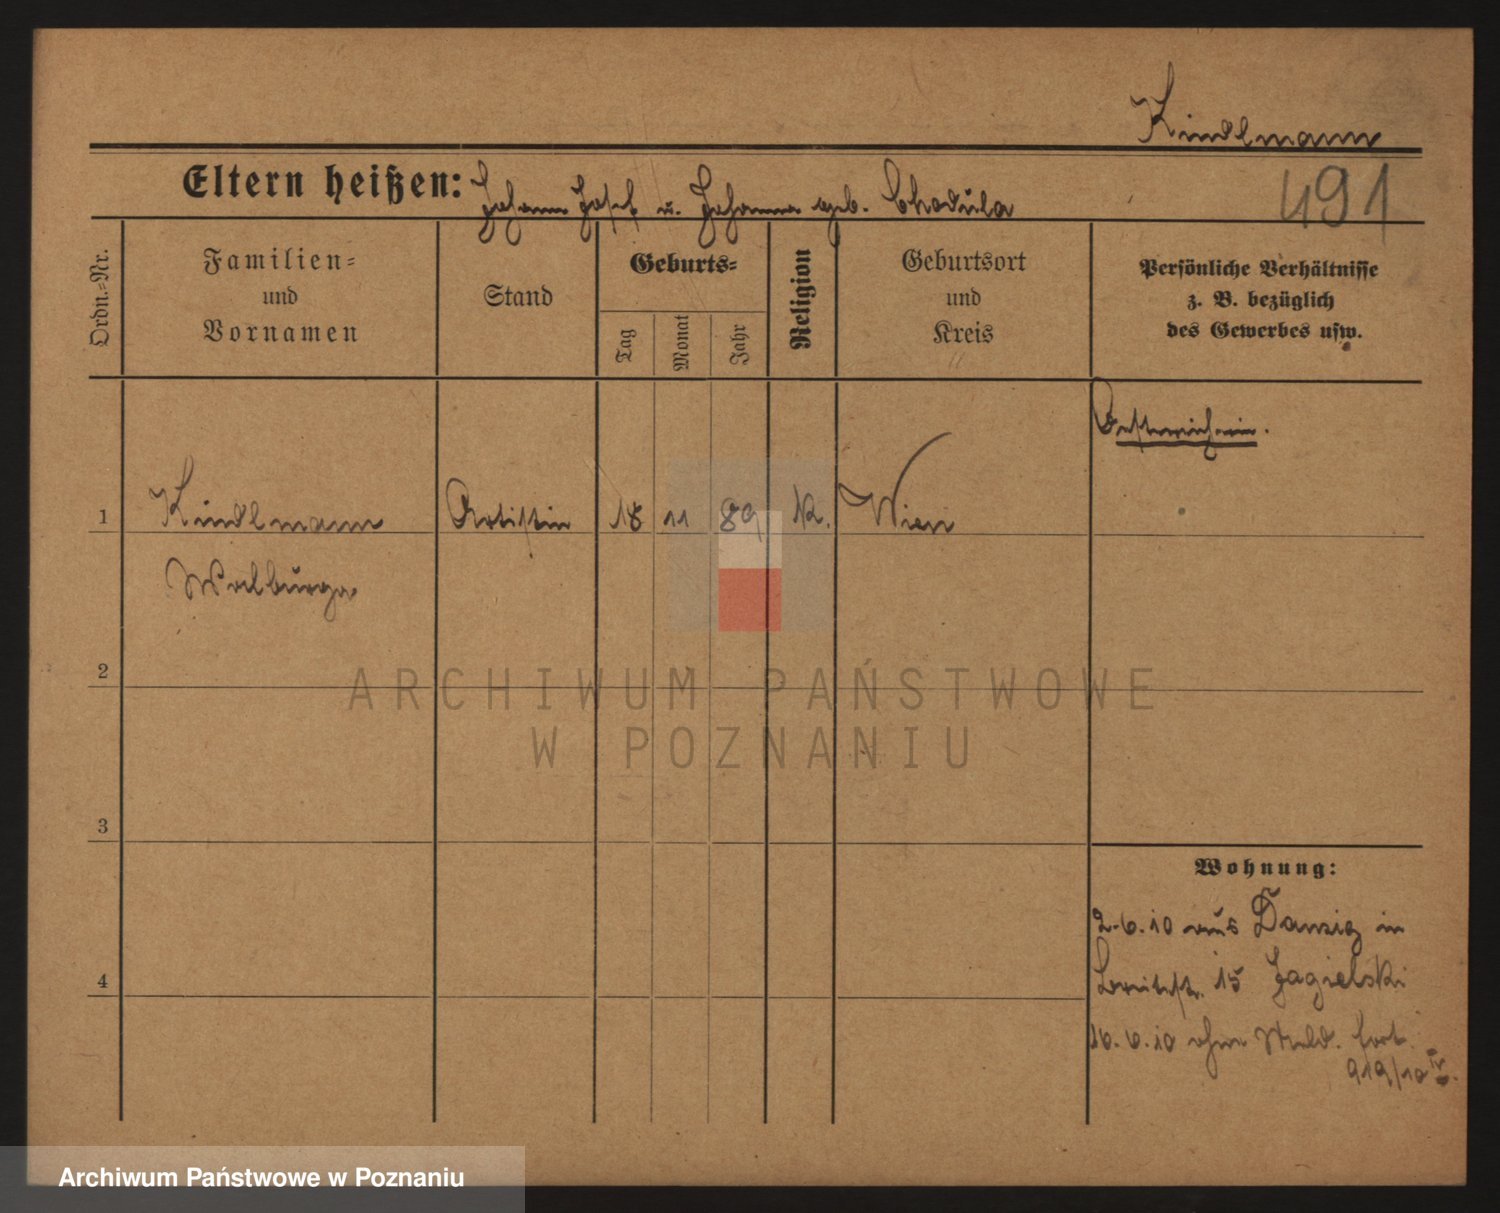 Kindlmann
Eltern heißen: Johann Josef u. Johanna geb. Chodula
491
Ordn.-Nr.
Familien-
und
Vornamen
Stand
Geburts-
Tag
Monat
Jahr
Religion
Geburtsort
und
Kreis
Persönliche Verhältnisse
z. B. bezüglich
des Gewerbes usw.
Oesterreicherin.
1 Kindlmann Artistin 18 11 89 K. Wien
Walburga
2
ARCHIWUM PAŃSTWOWE
W POZNANIU
3
Wohnung:
2.6.10 aus Danzig in
Breitestr. 15 Jagielski
4
16.6.10 ohne Meld. fort.
919/10
Archiwum Państwowe w Poznaniu